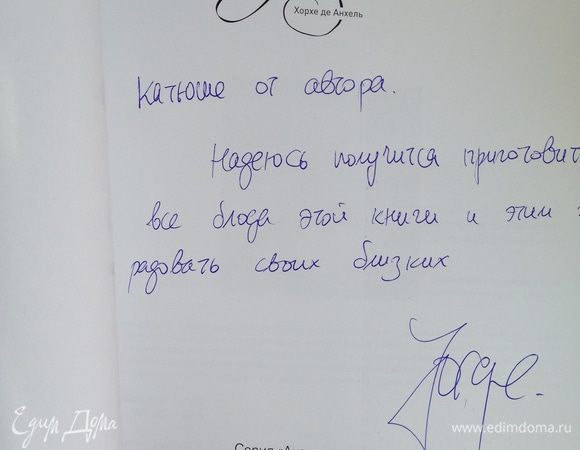 Хорхе де Анхель
Катюше от автора.
Надеюсь получится приготовит
все блюда этой книги и этим
радовать своих близких
Jorge.
Едим Дома
www.edimdoma.ru